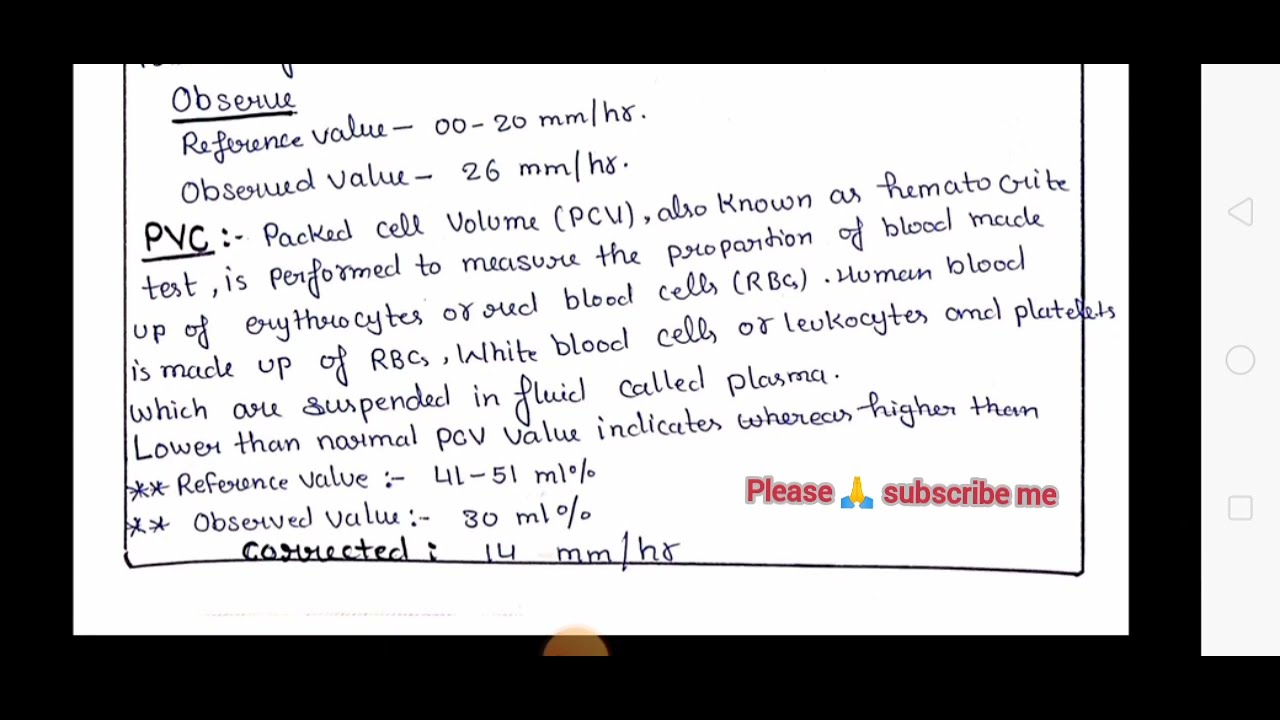 Observe
Reference value - 00-20 mm/hr.
Observed value - 26 mm/hr.
PVC :- Packed cell Volume (PCV), also known as hematocrite
test, is performed to measure the propartion of blood made
up of erythrocytes or red blood cells (RBCs). Human blood
is made up of RBCs, White blood cells or leukocytes and platelets
which are suspended in fluid called plasma.
Lower than normal PCV value indicates whereas higher than
** Reference value :- 41-51 ml%
** Observed value :- 30 ml%
Corrected : 14 mm/hr
Please 🙏 subscribe me